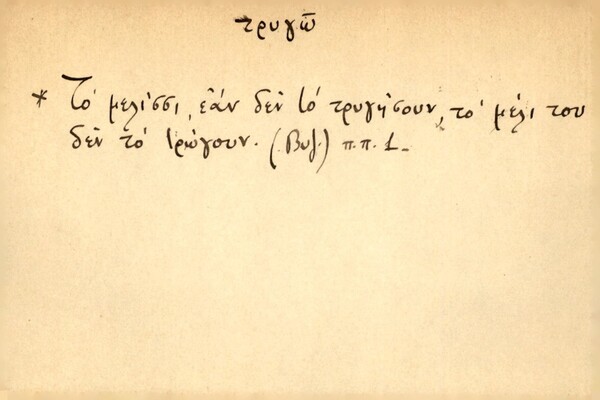 τρυγῶ
* Τό μελίσσι, ἐάν δέν τό τρυγήσουν, τό μέλι του
δέν τό τρώγουν. (Βυζ.) π.π. 1.